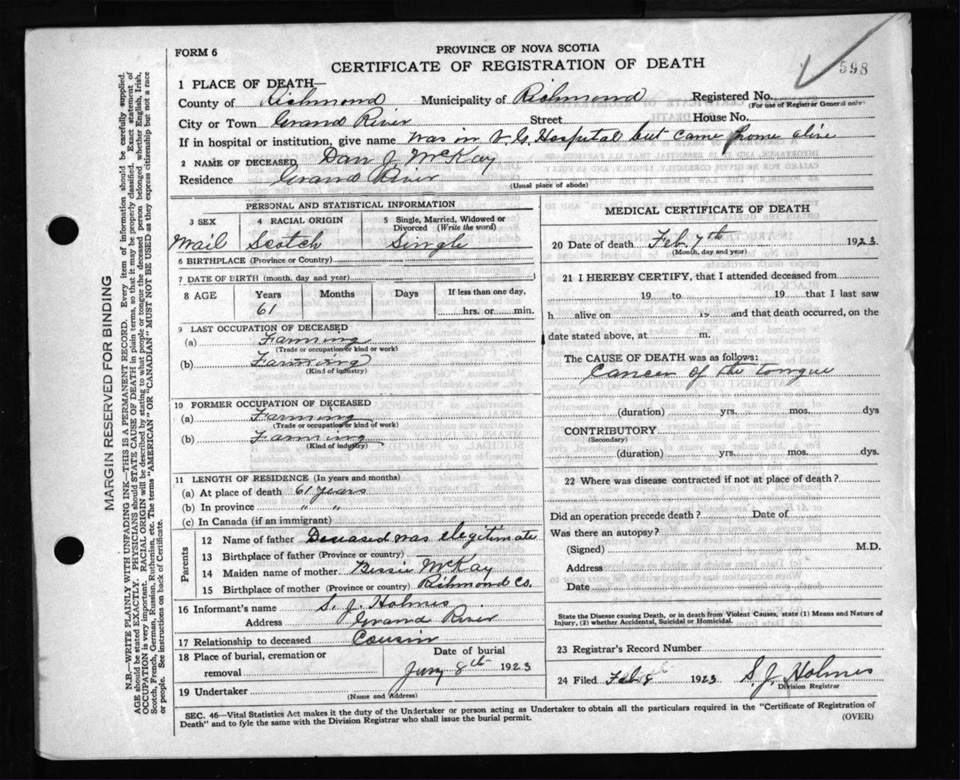 FORM 6
PROVINCE OF NOVA SCOTIA
CERTIFICATE OF REGISTRATION OF DEATH
598
1 PLACE OF DEATH—
County of Richmond Municipality of Richmond Registered No.
(For use of Registrar General only)
City or Town Grand River Street House No.
If in hospital or institution, give name Was in V. G. Hospital but came home alive
2 NAME OF DECEASED Dan J. McKay
Residence Grand River
(Usual place of abode)
PERSONAL AND STATISTICAL INFORMATION
3 SEX 4 RACIAL ORIGIN 5 Single, Married, Widowed or Divorced (Write the word)
Mail Scotch Single
6 BIRTHPLACE (Province or Country)
7 DATE OF BIRTH (month, day and year)
8 AGE Years Months Days If less than one day,
61 hrs. or min.
9 LAST OCCUPATION OF DECEASED
(a) Farming
(Trade or occupation or kind or work)
(b) Farming
(Kind of industry)
10 FORMER OCCUPATION OF DECEASED
(a) Farming
(Trade or occupation or kind of work)
(b) Farming
(Kind of industry)
11 LENGTH OF RESIDENCE (In years and months)
(a) At place of death 61 years
(b) In province " "
(c) In Canada (if an immigrant)
Parents
12 Name of father Deceased was elegitimate
13 Birthplace of father (Province or country)
14 Maiden name of mother Bessie McKay
15 Birthplace of mother (Province or country) Richmond Co.
16 Informant's name S. J. Holmes
Address Grand River
17 Relationship to deceased Cousin
18 Place of burial, cremation or removal Date of burial
Jany 8th 1923
19 Undertaker
(Name and Address)
MEDICAL CERTIFICATE OF DEATH
20 Date of death Feb. 7th 1923.
(Month, day and year)
21 I HEREBY CERTIFY, that I attended deceased from
19 to 19 that I last saw
h alive on 19 and that death occurred, on
date stated above, at m.
The CAUSE OF DEATH was as follows:
Cancer of the tongue
(duration) yrs. mos. dys
CONTRIBUTORY
(Secondary)
(duration) yrs. mos. dys.
22 Where was disease contracted if not at place of death?
Did an operation precede death? Date of
Was there an autopsy?
(Signed) M.D.
Address
Date
State the Disease causing Death, or in death from Violent Causes, state (1) Means and Nature of Injury, (2) whether Accidental, Suicidal or Homicidal.
23 Registrar's Record Number
24 Filed Feb 8th 1923 S. J. Holmes
Division Registrar
SEC. 46—Vital Statistics Act makes it the duty of the Undertaker or person acting as Undertaker to obtain all the particulars required in the "Certificate of Registration of
Death" and to fyle the same with the Division Registrar who shall issue the burial permit.
(OVER)
MARGIN RESERVED FOR BINDING
N.B.—WRITE PLAINLY WITH UNFADING INK—THIS IS A PERMANENT RECORD. Every item of information should be carefully supplied.
AGE should be stated EXACTLY. PHYSICIANS should STATE CAUSE OF DEATH in plain terms, so that it may be properly classified. Exact statement of
OCCUPATION is very important. RACIAL ORIGIN will be described by stating to what people or tongue the deceased person belonged whether English, Irish,
Scotch, French, German, Russian, Ruthenian, etc. The terms "AMERICAN" OR "CANADIAN" MUST NOT BE USED as they express citizenship but not a race
or people. See instructions on back of Certificate.